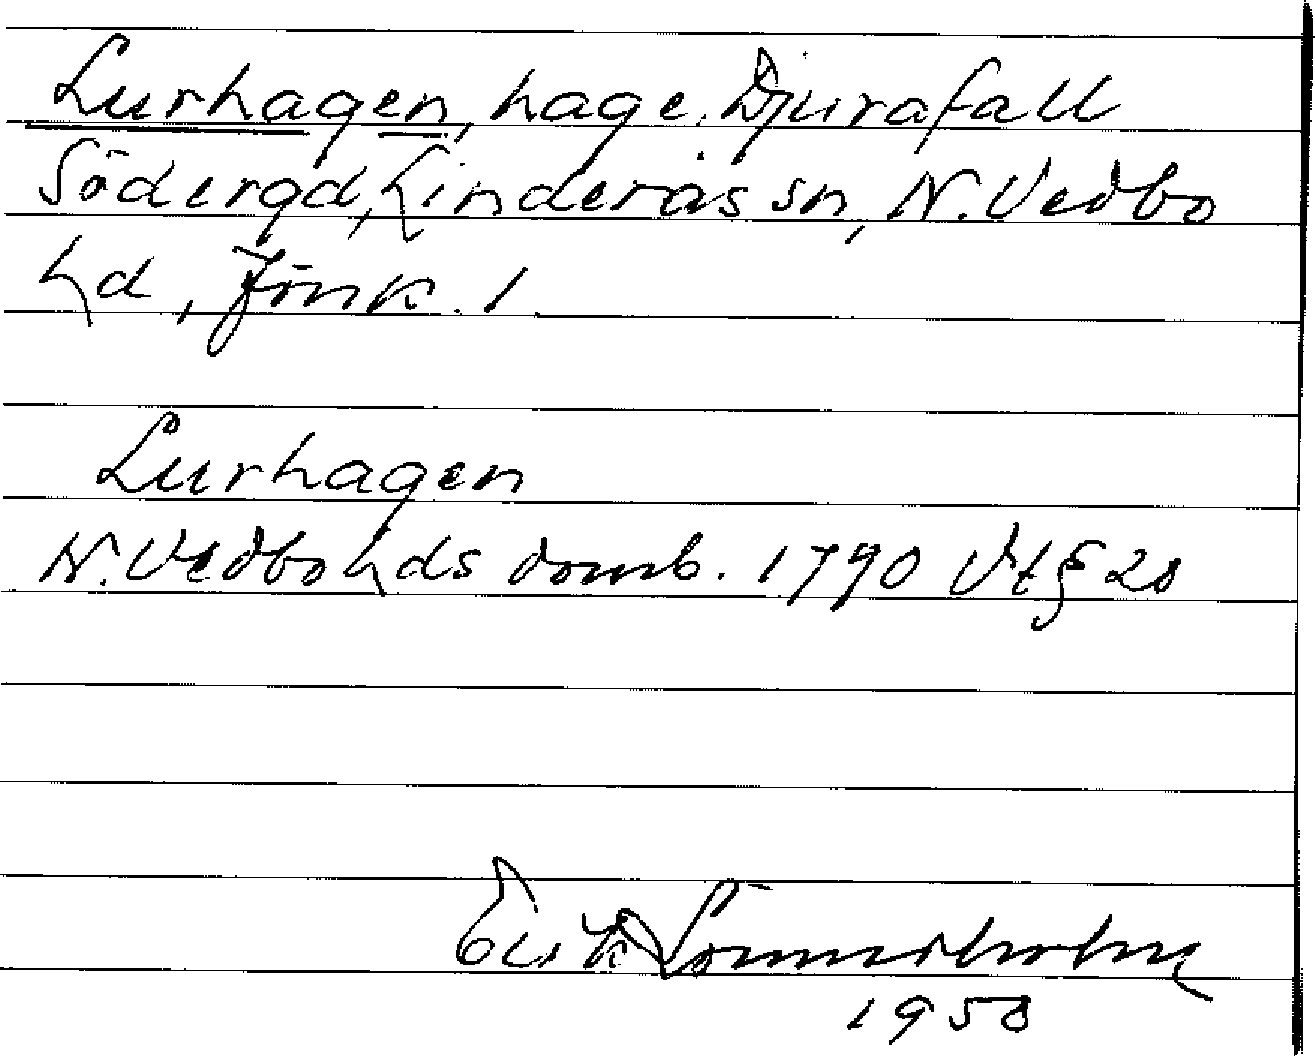 Lurhagen, hage. Djurafall
Södergd, Linderås sn, N. Vedbo
hd, Jönk. l
Lurhagen
N. Vedbo hds domb. 1790 Vt § 28
Erik Lönnerholm
1958